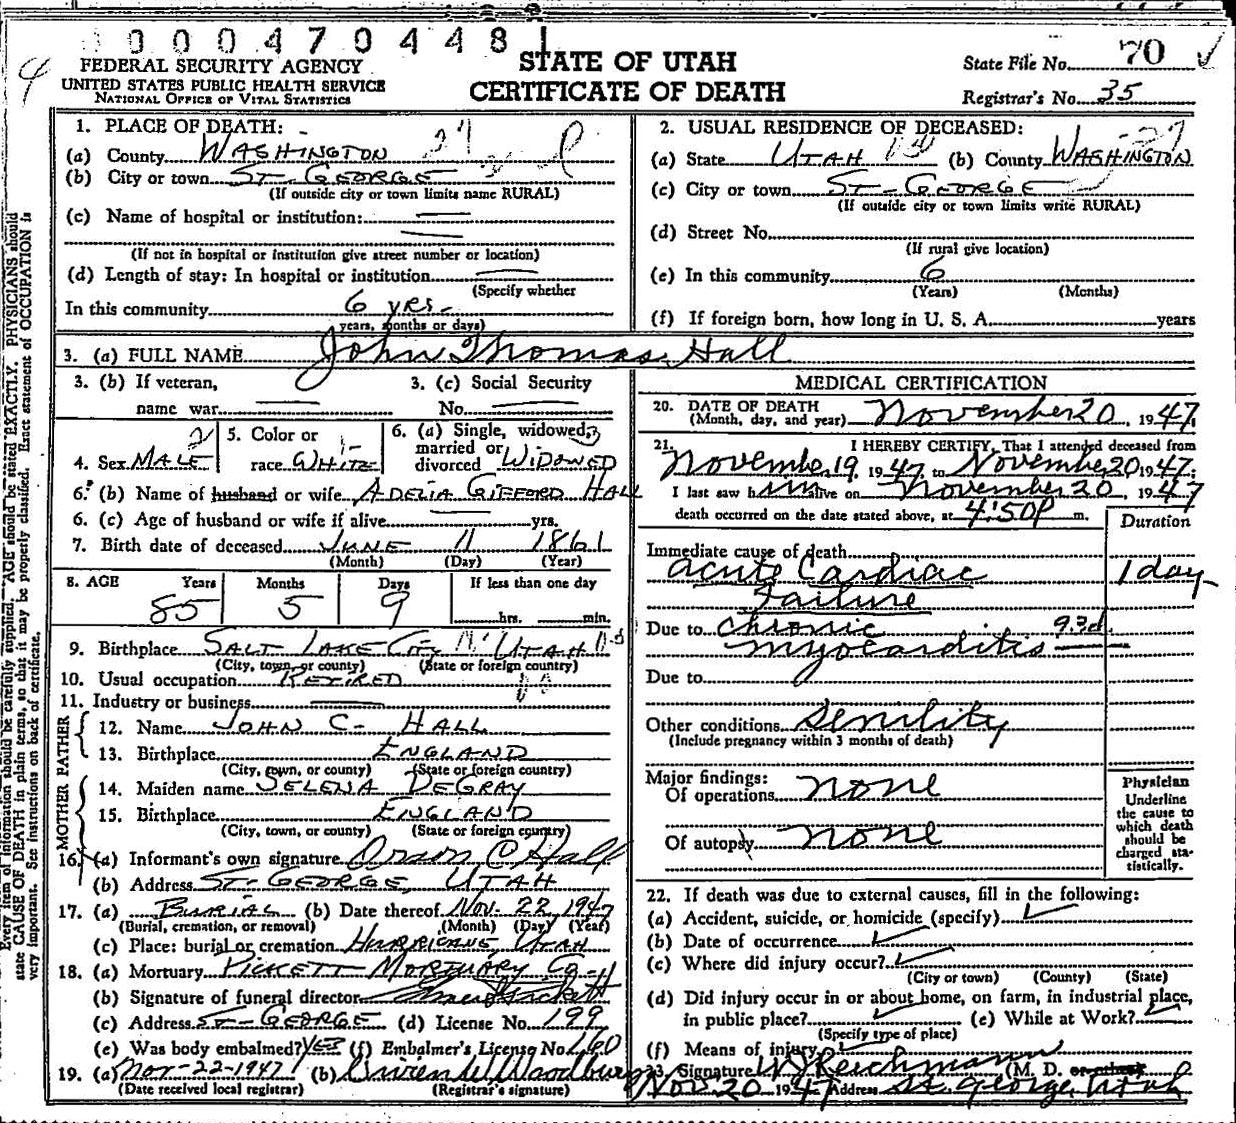 0 0 0 4 7 0 4 4 8 1
4
FEDERAL SECURITY AGENCY
UNITED STATES PUBLIC HEALTH SERVICE
NATIONAL OFFICE OF VITAL STATISTICS
STATE OF UTAH
CERTIFICATE OF DEATH
State File No. 70
Registrar's No. 35
Every item of information should be carefully supplied. AGE should be stated EXACTLY. PHYSICIANS should
state CAUSE OF DEATH in plain terms, so that it may be properly classified. Exact statement of OCCUPATION is
very important. See instructions on back of certificate.
1. PLACE OF DEATH:
(a) County WASHINGTON
(b) City or town ST. GEORGE
(If outside city or town limits name RURAL)
(c) Name of hospital or institution:
(If not in hospital or institution give street number or location)
(d) Length of stay: In hospital or institution
(Specify whether
In this community 6 yrs.
years, months or days)
2. USUAL RESIDENCE OF DECEASED:
(a) State UTAH (b) County WASHINGTON
(c) City or town ST. GEORGE
(If outside city or town limits write RURAL)
(d) Street No.
(If rural give location)
(e) In this community 6
(Years) (Months)
(f) If foreign born, how long in U. S. A. years
3. (a) FULL NAME John Thomas Hall
3. (b) If veteran,
name war
3. (c) Social Security
No.
4. Sex MALE
5. Color or
race WHITE
6. (a) Single, widowed,
married or
divorced WIDOWED
6. (b) Name of husband or wife ADELIA GIFFORD HALL
6. (c) Age of husband or wife if alive yrs.
7. Birth date of deceased JUNE 11 1861
(Month) (Day) (Year)
8. AGE Years Months Days If less than one day
85 5 9 hrs. min.
9. Birthplace SALT LAKE CITY UTAH
(City, town, or county) (State or foreign country)
10. Usual occupation RETIRED
11. Industry or business
FATHER
12. Name JOHN C. HALL
13. Birthplace ENGLAND
(City, town, or county) (State or foreign country)
MOTHER
14. Maiden name SELENA DEGRAY
15. Birthplace ENGLAND
(City, town, or county) (State or foreign country)
16. (a) Informant's own signature Orson C Hall
(b) Address ST. GEORGE, UTAH
17. (a) BURIAL (b) Date thereof NOV. 22, 1947
(Burial, cremation, or removal) (Month) (Day) (Year)
(c) Place: burial or cremation HURRICANE, UTAH
18. (a) Mortuary PICKETT MORTUARY CO.
(b) Signature of funeral director
(c) Address ST. GEORGE (d) License No. 199
(e) Was body embalmed? YES (f) Embalmer's License No. 160
19. (a) Nov-22-1947 (b) Woodbury
(Date received local registrar) (Registrar's signature)
MEDICAL CERTIFICATION
20. DATE OF DEATH
(Month, day, and year) November 20, 1947
21. I HEREBY CERTIFY, That I attended deceased from
November 19 1947 to November 20 1947.
I last saw him alive on November 20, 1947
death occurred on the date stated above, at 4:50 P m.
Duration
Immediate cause of death
Acute Cardiac 1 day
Failure
Due to Chronic 93d
myocarditis
Due to
Other conditions Senility
(Include pregnancy within 3 months of death)
Major findings:
Of operations none
Of autopsy none
Physician
Underline
the cause to
which death
should be
charged sta-
tistically.
22. If death was due to external causes, fill in the following:
(a) Accident, suicide, or homicide (specify)
(b) Date of occurrence
(c) Where did injury occur?
(City or town) (County) (State)
(d) Did injury occur in or about home, on farm, in industrial place,
in public place? (e) While at Work?
(Specify type of place)
(f) Means of injury
23. Signature Reichmann (M. D. or other)
Nov. 20 1947 Address St. George, Utah